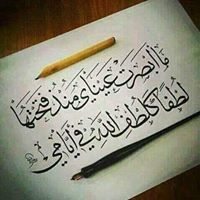 ما أبصرت عيناي منذ فتحتها
لطفًا كلطف الله في أيامي